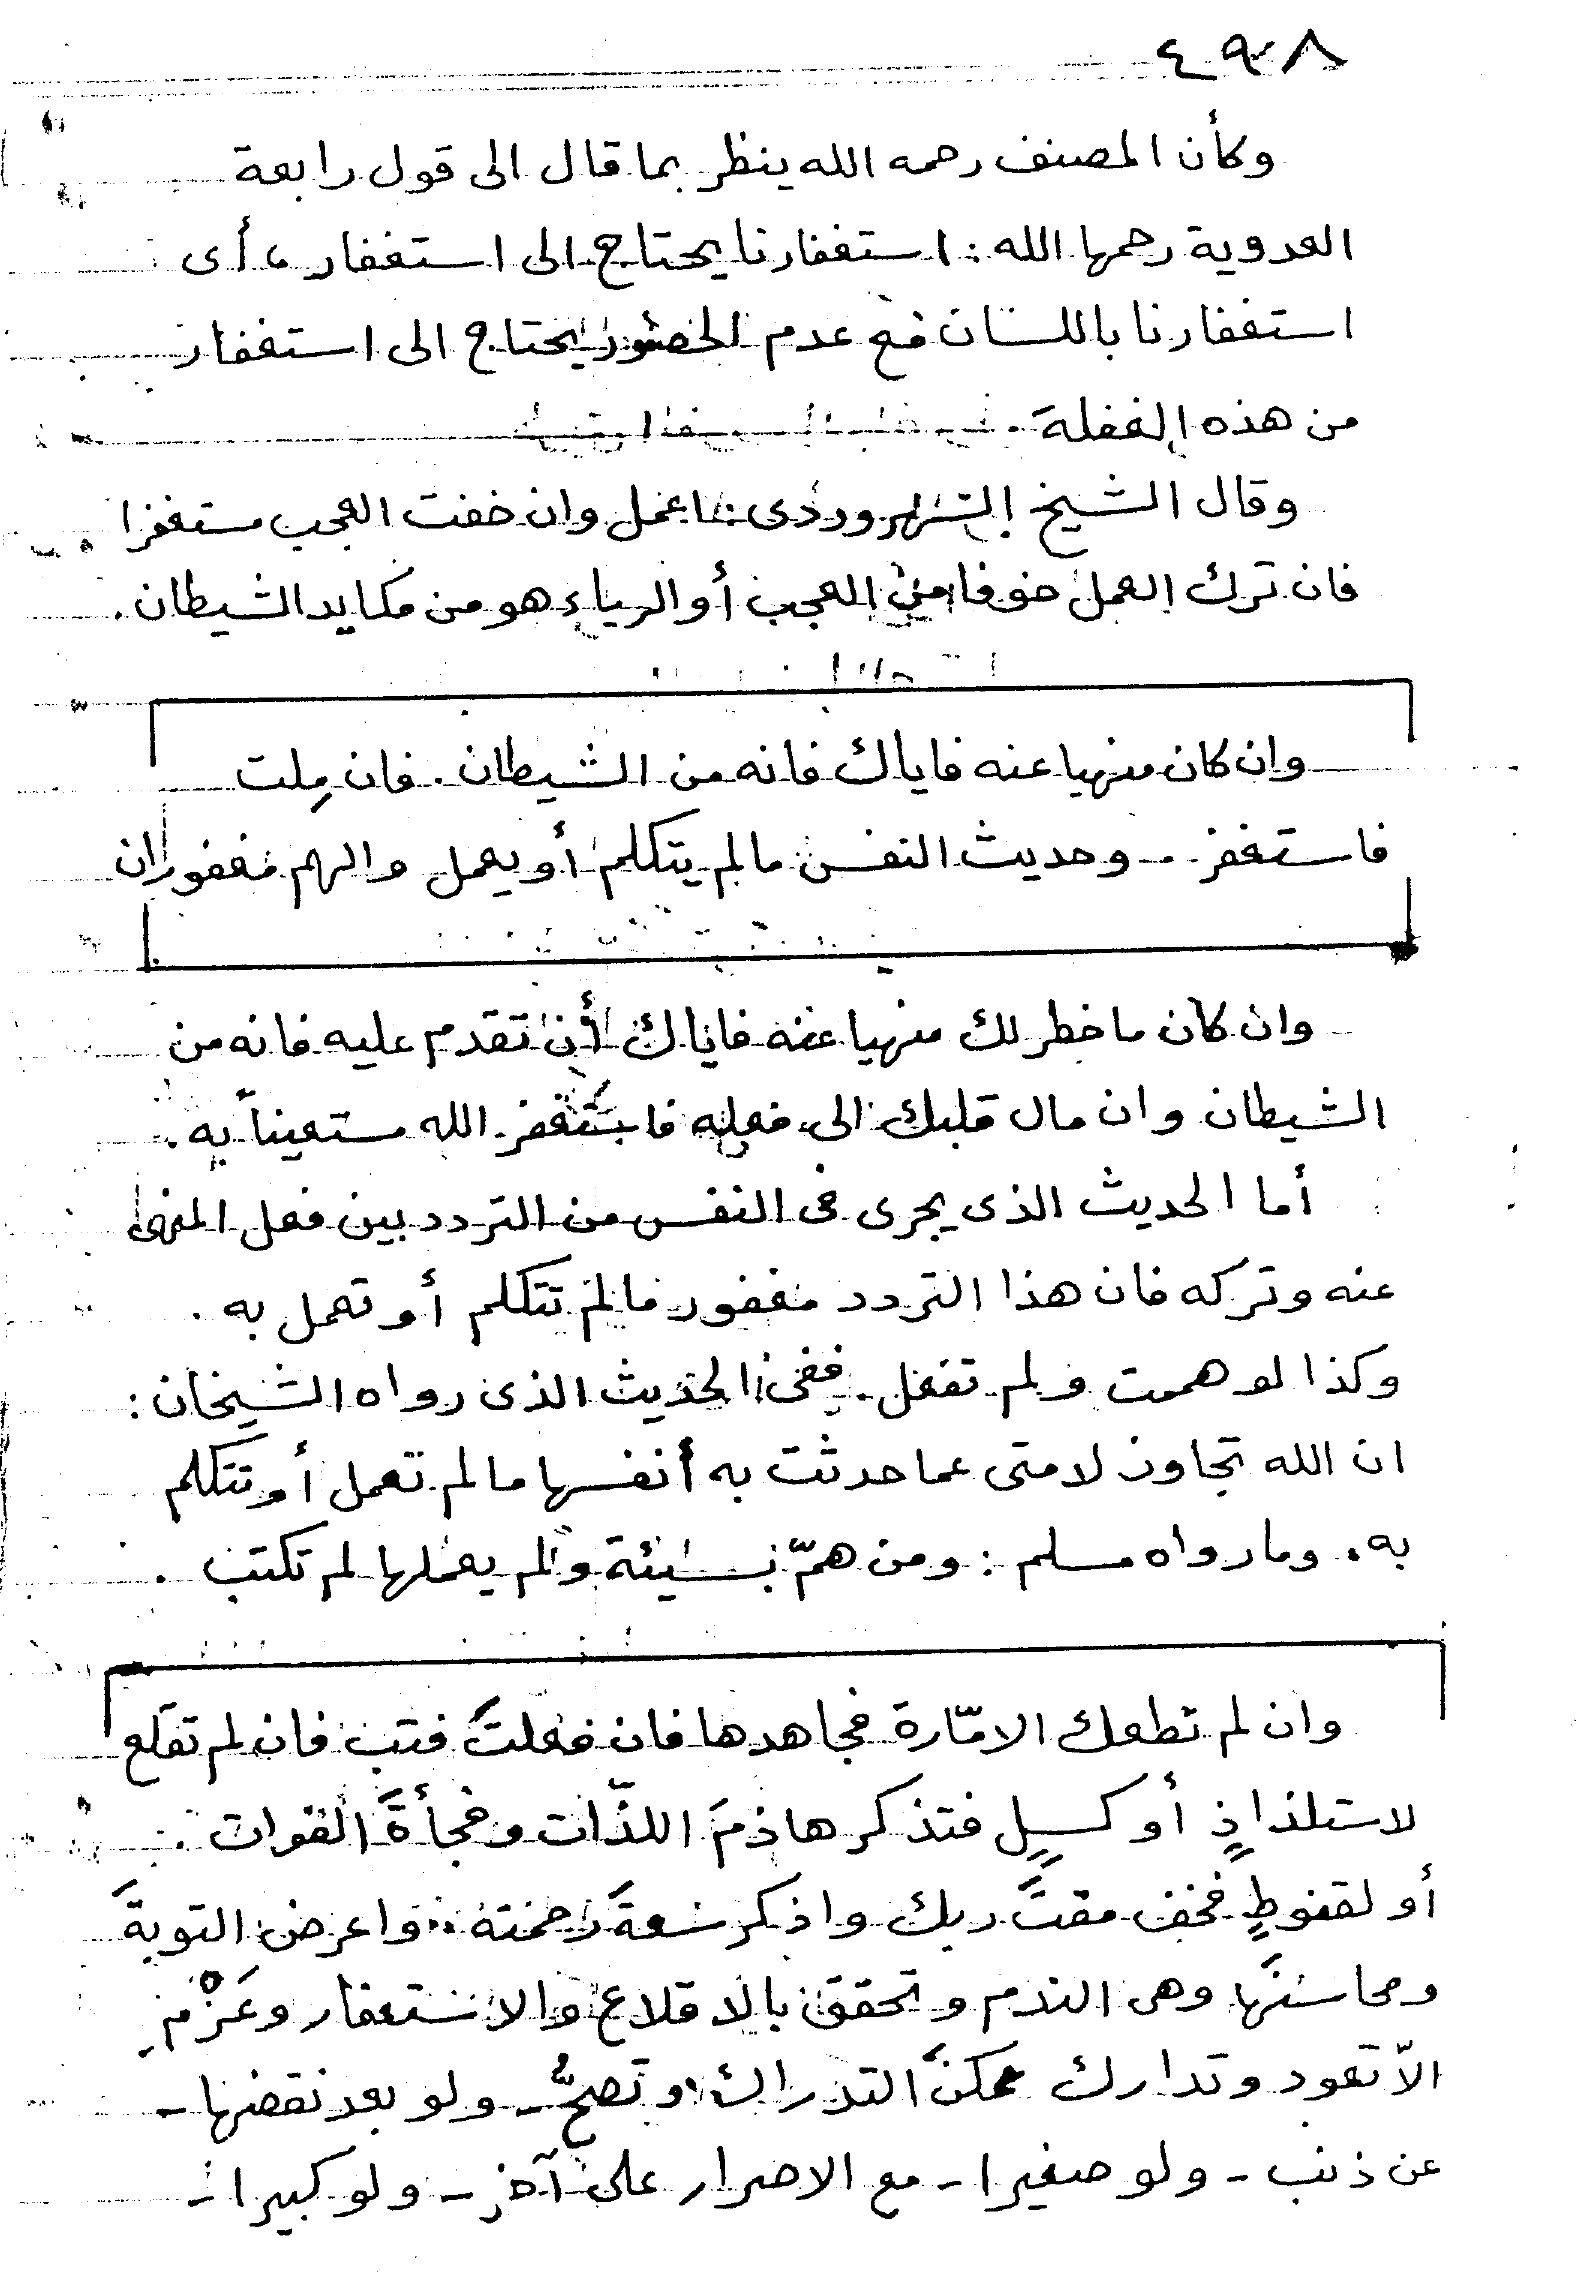 ٤٩٨
وكأن المصنف رحمه الله ينظر بما قال الى قول رابعة
العدوية رحمها الله : استغفارنا يحتاج الى استغفار ، أى
استغفارنا باللسان مع عدم الحضور يحتاج الى استغفار
من هذه الغفلة .
وقال الشيخ السهروردى : اعمل وان خفت العجب مستغفرا
فان ترك العمل خوفا من العجب أو الرياء هو من مكايد الشيطان .
وان كان منهيا عنه فاياك فانه من الشيطان . فان مِلت
فاستغفر .. وحديث النفس مالم يتكلم أو يعمل والهم مغفوران
وان كان ما خطر لك منهيا عنه فاياك أن تقدم عليه فانه من
الشيطان وان مال قلبك الى فعله فاستغفر الله مستعيناً به .
أما الحديث الذى يجرى فى النفس من التردد بين فعل المنهى
عنه وتركه فان هذا التردد مغفور مالم تتكلم أو تعمل به .
وكذا لو هممت ولم تفعل . ففى الحديث الذى رواه الشيخان :
ان الله تجاوز لامتى عما حدثت به أنفسها مالم تعمل أو تتكلم
به . وما رواه مسلم : ومن همّ بسيئة ولم يعملها لم تكتب .
وان لم تطعك الامّارة فجاهدها فان فعلتَ فتب فان لم تقلع
لاستلذاذٍ أو كسلٍ فتذكر هاذمَ اللذّات وفجأةَ الفوات
أو لقنوطٍ فخف مقتَ ربك واذكر سعةَ رحمته .. واعرض التوبةَ
ومحاسنَها وهى الندم وتحقق بالاقلاع والاستغفار وعَزْمِ
الاّ تعود وتدارك ممكنَ التدراك وتصحُّ - ولو بعد نقضها -
عن ذنب - ولو صغيرا - مع الاصرار على آخرِ - ولو كبيرا -